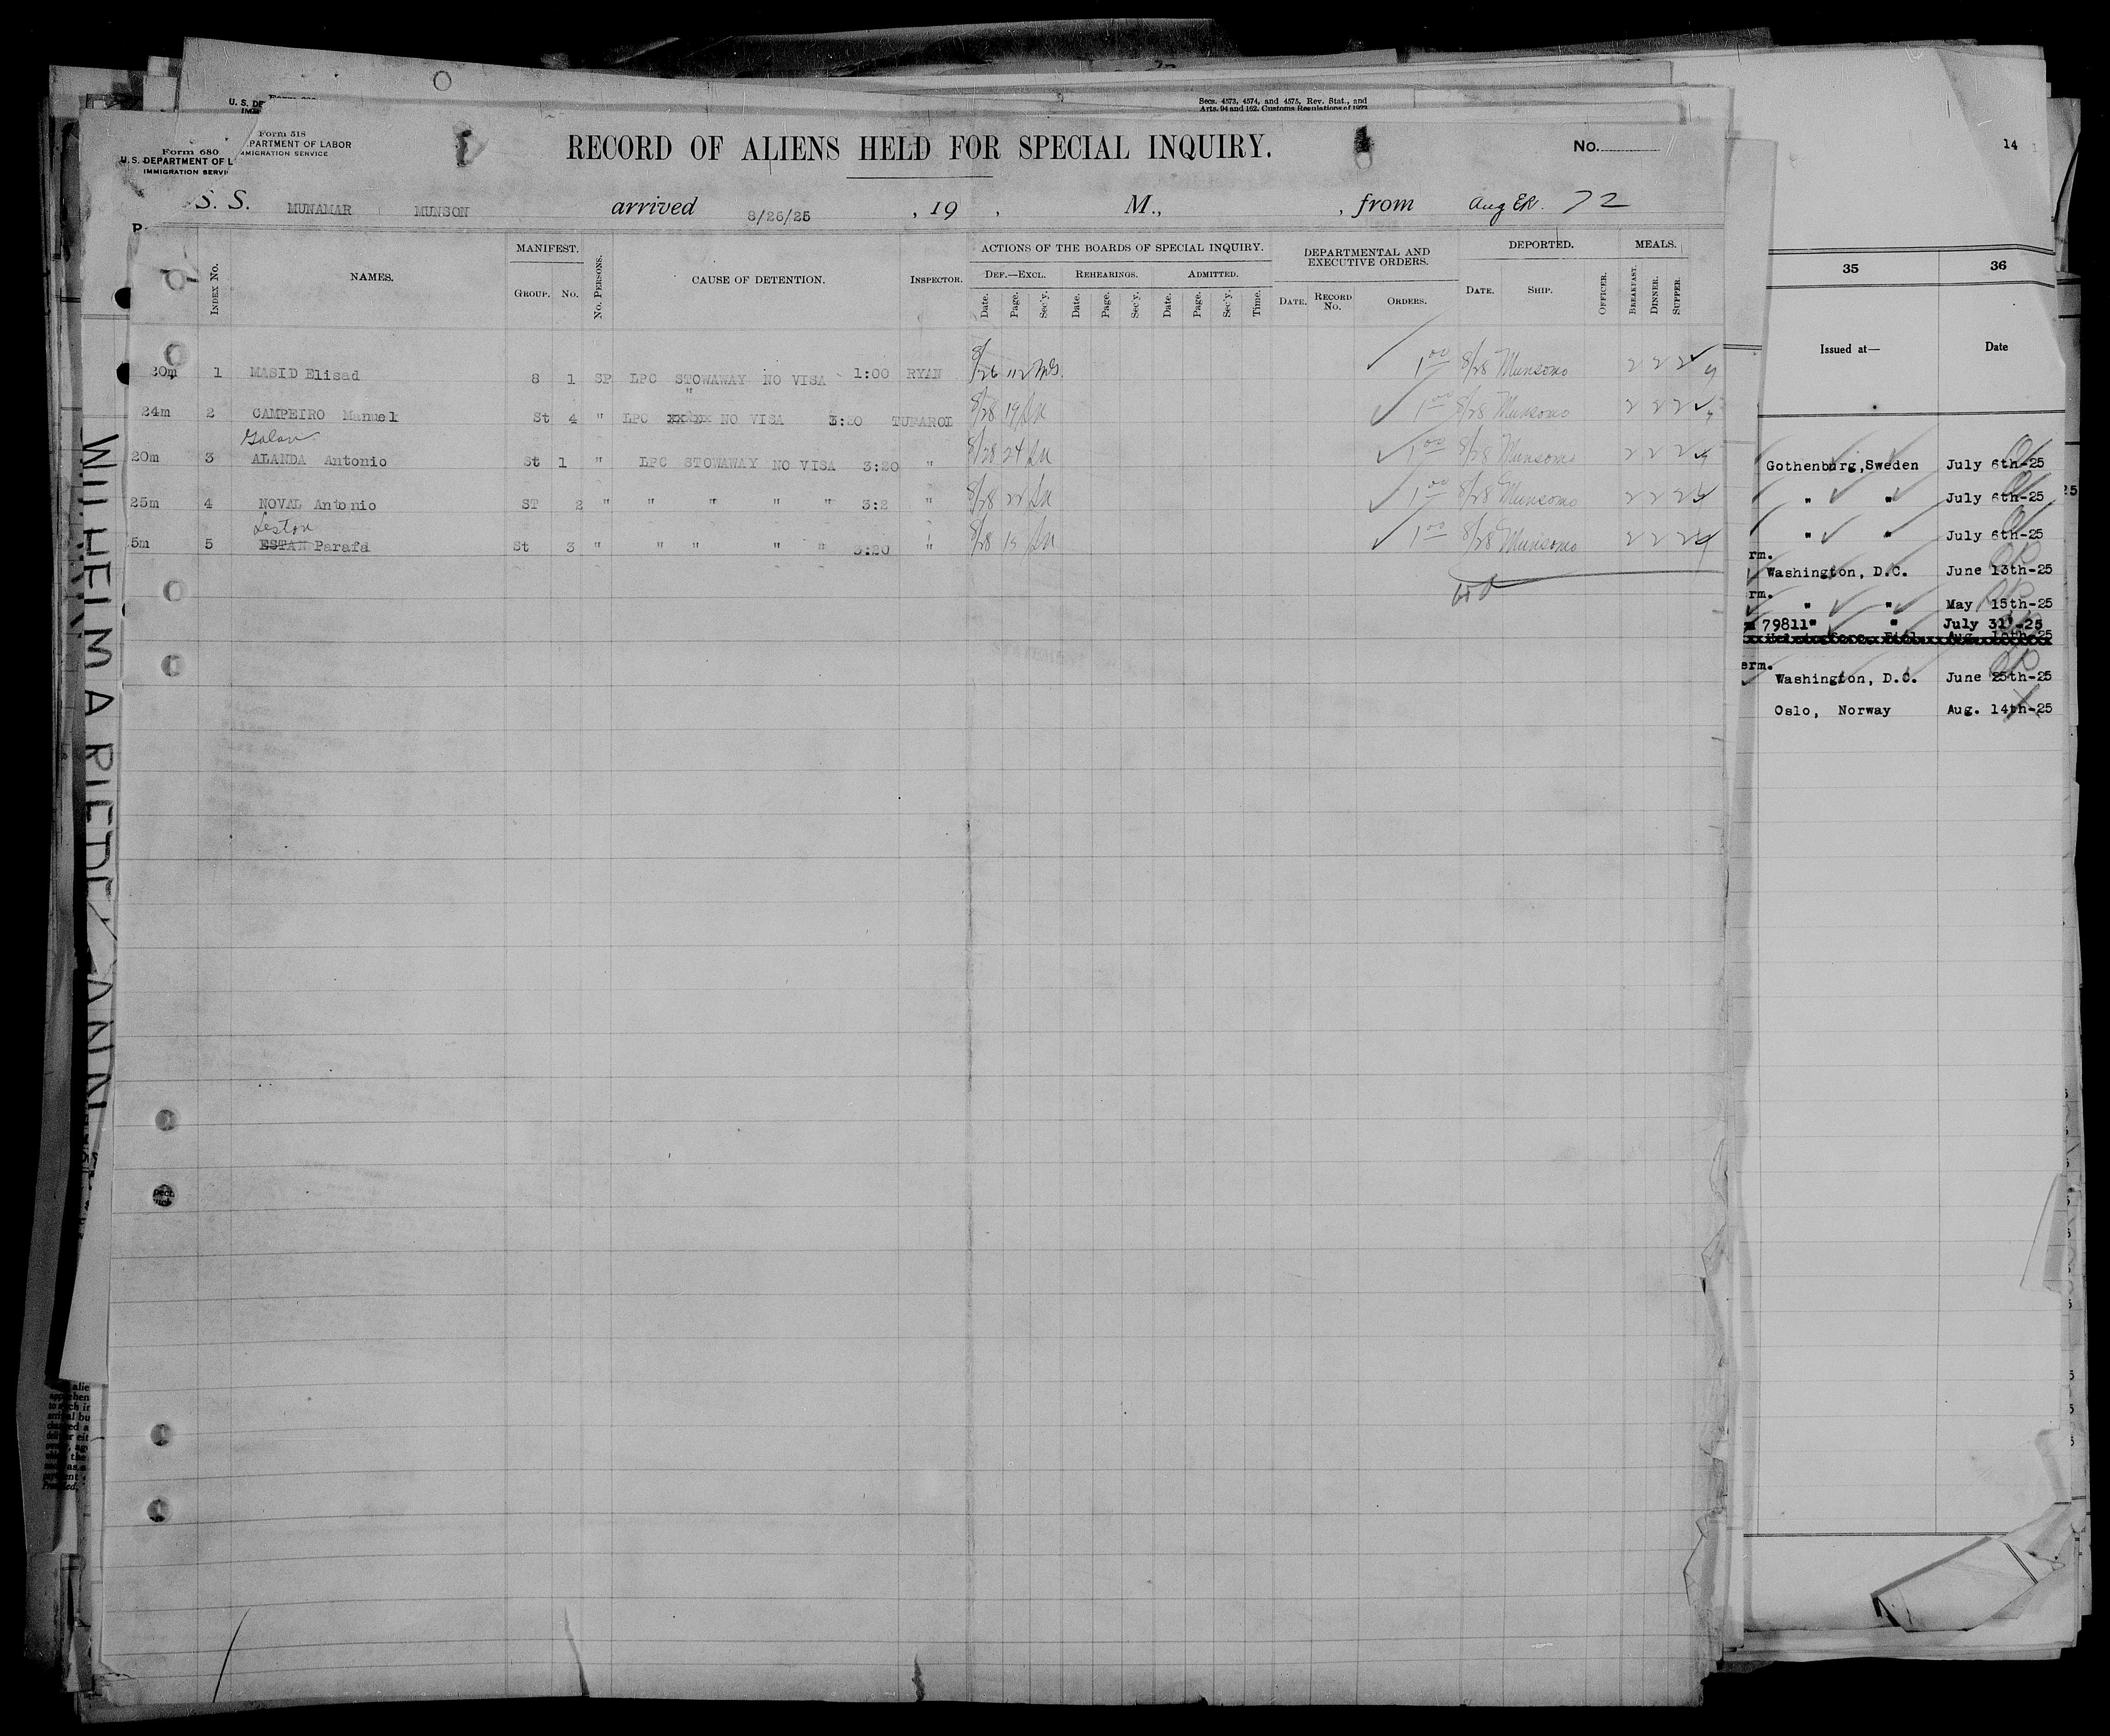 Secs. 4573, 4574, and 4575, Rev. Stat., and
Arts. 94 and 162. Customs Regulations of 1923
U. S. DE
Form 518
PARTMENT OF LABOR
MMIGRATION SERVICE
Form 680
U. S. DEPARTMENT OF L
IMMIGRATION SERVI
RECORD OF ALIENS HELD FOR SPECIAL INQUIRY.
No.
14
S. S. MUNAMAR MUNSON arrived 8/26/25 , 19 , M., , from Aug ER. 72
INDEX No. NAMES. MANIFEST. GROUP. No. No. PERSONS. CAUSE OF DETENTION. INSPECTOR.
ACTIONS OF THE BOARDS OF SPECIAL INQUIRY.
DEF.—EXCL. REHEARINGS. ADMITTED.
Date. Page. Sec'y. Date. Page. Sec'y. Date. Page. Sec'y. Time.
DEPARTMENTAL AND EXECUTIVE ORDERS.
DATE. RECORD No. ORDERS.
DEPORTED.
DATE. SHIP. OFFICER.
MEALS.
BREAKFAST. DINNER. SUPPER.
20m 1 MASID Elisad 8 1 SP LPC STOWAWAY NO VISA 1:00 RYAN 8/26 112 1 00 8/28 Munsomo 2 2 2
24m 2 CAMPEIRO Manuel St 4 " LPC " NO VISA 3:20 8/28 19 1 00 8/28 Munsomo 2 2 2
Galan
20m 3 ALANDA Antonio St 1 " LPC STOWAWAY NO VISA 3:20 " 8/28 24 1 00 8/28 Munsomo 2 2 2
25m 4 NOVAL Antonio ST 2 " " " " " 3:2 " 8/28 22 1 00 8/28 Munsomo 2 2 2
Leston
5m 5 ESTAN Parafa St 3 " " " " " 3:20 " 8/28 1 00 8/28 Munsomo 2 2 2
35 36
Issued at— Date
Gothenburg,Sweden July 6th-25
" " July 6th-25
" " July 6th-25
rm.
Washington, D.C. June 13th-25
rm.
" " May 15th-25
79811" " July 31'-25
erm.
Washington, D.C. June 25th-25
Oslo, Norway Aug. 14th-25